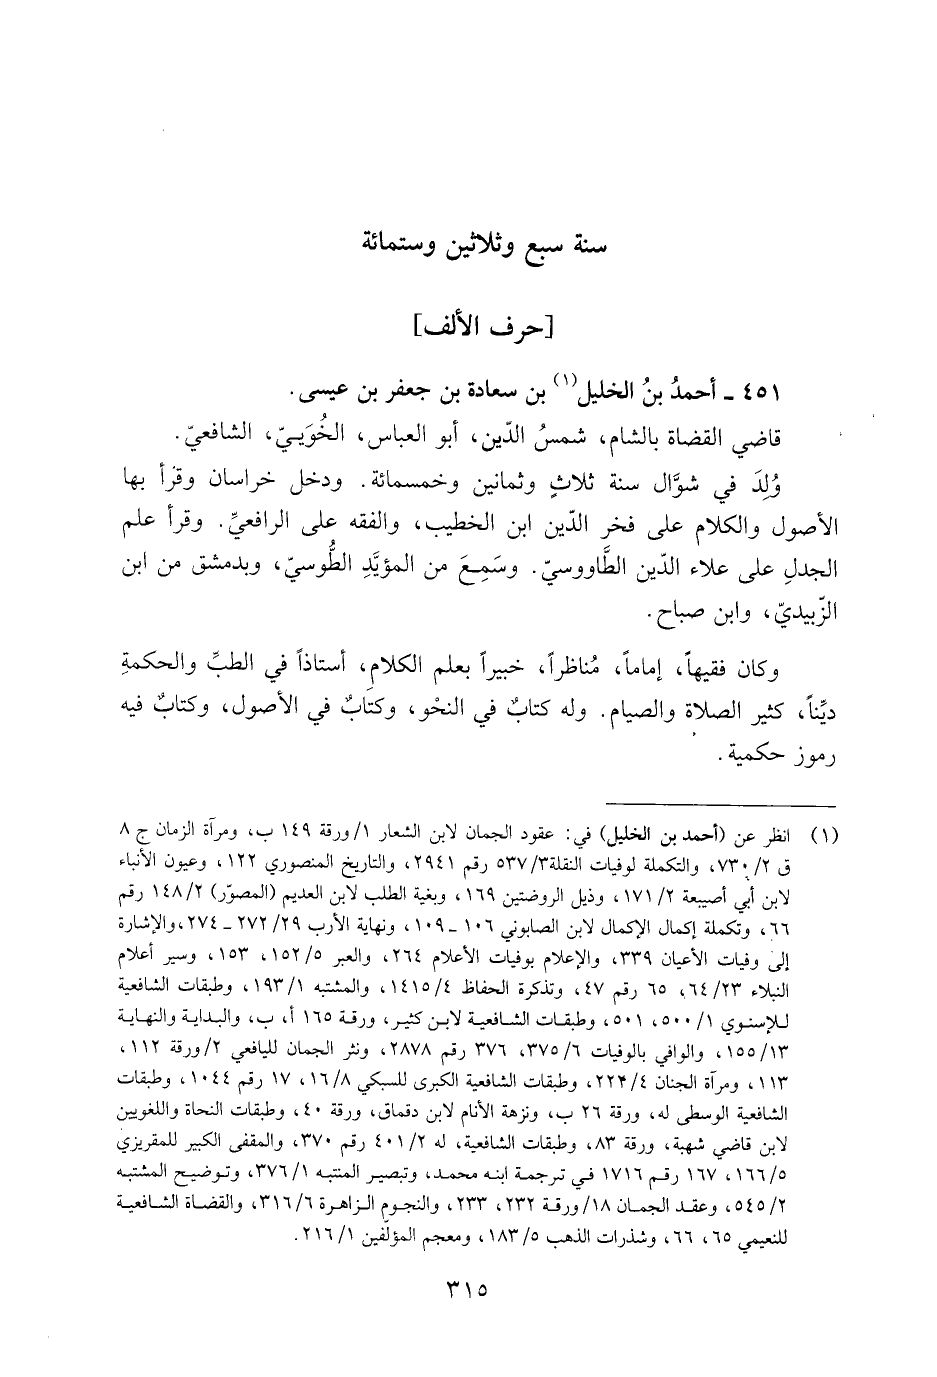 سنة سبع وثلاثين وستمائة
[حرف الألف]
٤٥١ ـ أحمدُ بنُ الخليل(١) بن سعادة بن جعفر بن عيسى.
قاضي القضاة بالشام، شمسُ الدّين، أبو العباس، الخُوَييّ، الشافعيّ.
وُلِدَ في شوَّال سنة ثلاثٍ وثمانين وخمسمائة. ودخل خراسان وقرَأ بها
الأصول والكلام على فخر الدّين ابن الخطيب، والفقه على الرافعيِّ. وقرأ علم
الجدلِ على علاء الدّين الطَّاووسيّ. وسَمِعَ من المؤيَّدِ الطُّوسيّ، وبدمشق من ابن
الزّبيديّ، وابن صباح.
وكان فقيهاً، إماماً، مُناظراً، خبيراً بعلم الكلام، أستاذاً في الطبِّ والحكمةِ
ديِّناً، كثير الصلاة والصيام. وله كتابٌ في النحْو، وكتابٌ في الأصول، وكتابٌ فيه
رموز حكمية.
(١) انظر عن (أحمد بن الخليل) في: عقود الجمان لابن الشعار ١/ ورقة ١٤٩ ب، ومرآة الزمان ج ٨
ق ٢/ ٧٣٠، والتكملة لوفيات النقلة٣/ ٥٣٧ رقم ٢٩٤١، والتاريخ المنصوري ١٢٢، وعيون الأنباء
لابن أبي أصيبعة ٢/ ١٧١، وذيل الروضتين ١٦٩، وبغية الطلب لابن العديم (المصوّر) ٢/ ١٤٨ رقم
٦٦، وتكملة إكمال الإكمال لابن الصابوني ١٠٦ ـ ١٠٩، ونهاية الأرب ٢٩/ ٢٧٢ ـ ٢٧٤،والإشارة
إلى وفيات الأعيان ٣٣٩، والإعلام بوفيات الأعلام ٢٦٤، والعبر ٥/ ١٥٢، ١٥٣، وسير أعلام
النبلاء ٢٣/ ٦٤، ٦٥ رقم ٤٧، وتذكرة الحفاظ ٤/ ١٤١٥، والمشتبه ١/ ١٩٣، وطبقات الشافعية
للإسنوي ١/ ٥٠٠، ٥٠١، وطبقات الشافعية لابن كثير، ورقة ١٦٥ أ، ب، والبداية والنهاية
١٣/ ١٥٥، والوافي بالوفيات ٦/ ٣٧٥، ٣٧٦ رقم ٢٨٧٨، ونثر الجمان لليافعي ٢/ ورقة ١١٢،
١١٣، ومرآة الجنان ٤/ ٢٢٤، وطبقات الشافعية الكبرى للسبكي ٨/ ١٦، ١٧ رقم ١٠٤٤، وطبقات
الشافعية الوسطى له، ورقة ٢٦ ب، ونزهة الأنام لابن دقماق، ورقة ٤٠، وطبقات النحاة واللغويين
لابن قاضي شهبة، ورقة ٨٣، وطبقات الشافعية، له ٢/ ٤٠١ رقم ٣٧٠، والمقفى الكبير للمقريزي
٥/ ١٦٦، ١٦٧ رقم ١٧١٦ في ترجمة ابنه محمد، وتبصير المنتبه ١/ ٣٧٦، وتوضيح المشتبه
٢/ ٥٤٥، وعقد الجمان ١٨/ ورقة ٢٣٢، ٢٣٣، والنجوم الزاهرة ٦/ ٣١٦، والقضاة الشافعية
للنعيمي ٦٥، ٦٦، وشذرات الذهب ٥/ ١٨٣، ومعجم المؤلّفين ١/ ٢١٦.
٣١٥